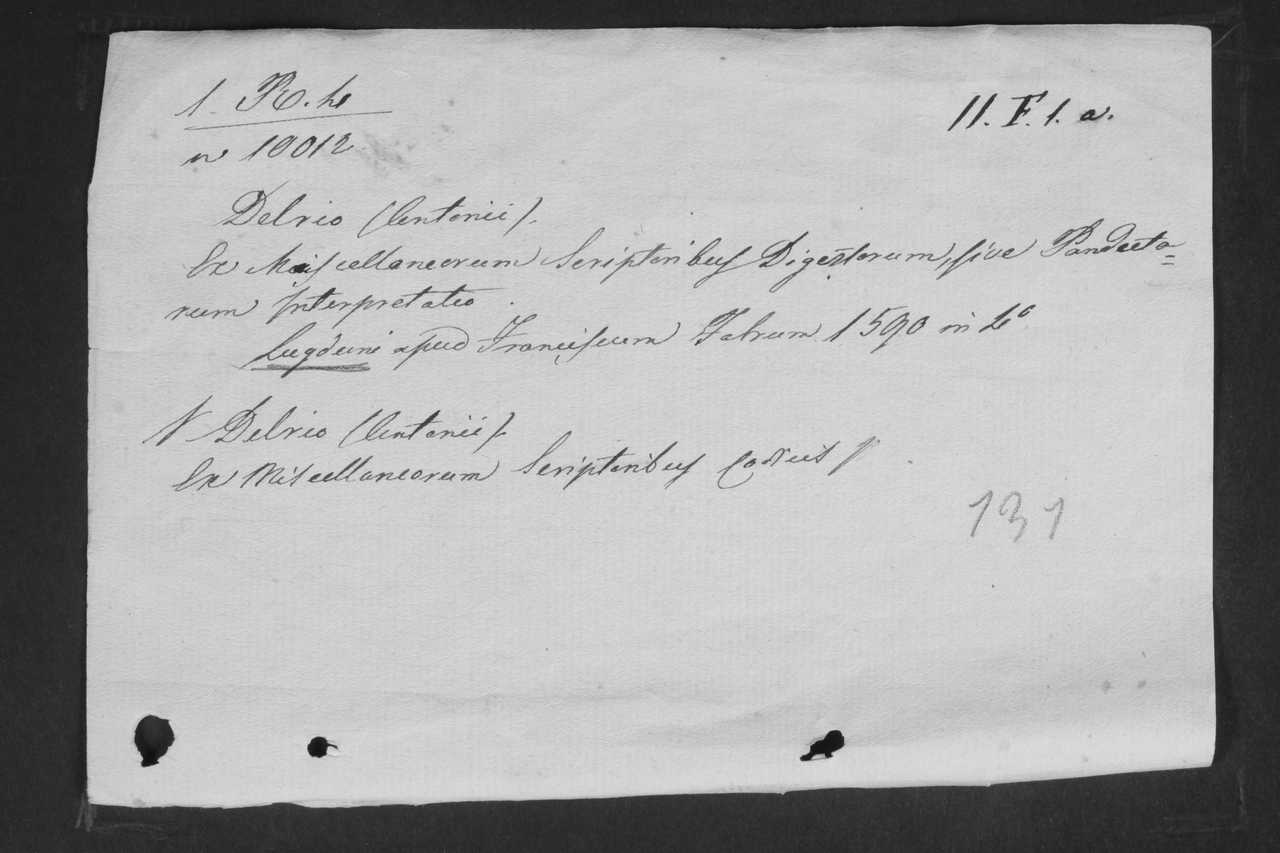 1. R. h.
n 10012
11. F. 1. a.
Delrio (Antonii).
Ex Miscellaneorum Scriptoribus Digestorum, sive Pandecta=
rum Interpretatio.
Lugduni apud Franciscum Fabrum 1590 in 4°
N Delrio (Antonii).
Ex Miscellaneorum Scriptoribus Codicis
131